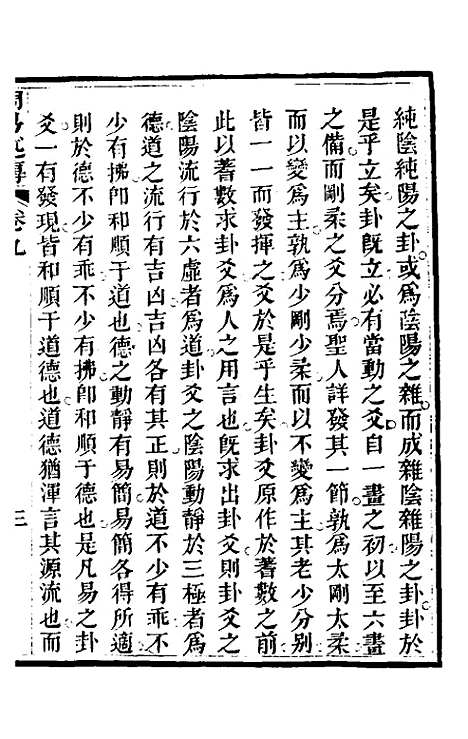 純陰純陽之卦或爲陰陽之雜而成雜陰雜陽之卦卦於
是乎立矣卦旣立必有當動之爻自一畫之初以至六畫
之備而剛柔之爻分焉聖人詳發其一節孰爲太剛太柔
而以變爲主孰爲少剛少柔而以不變爲主其老少分別
皆一一而發揮之爻於是乎生矣卦爻原作於蓍數之前
此以蓍數求卦爻爲人之用言也旣求出卦爻則卦爻之
陰陽流行於六虛者爲道卦爻之陰陽動靜於三極者爲
德道之流行有吉凶吉凶各有其正則於道不少有乖不
少有拂卽和順于道也德之動靜有易簡易簡各得所適
則於德不少有乖不少有拂卽和順于德也是凡易之卦
爻一有發現皆和順于道德也道德猶渾言其源流也而
卷九
三